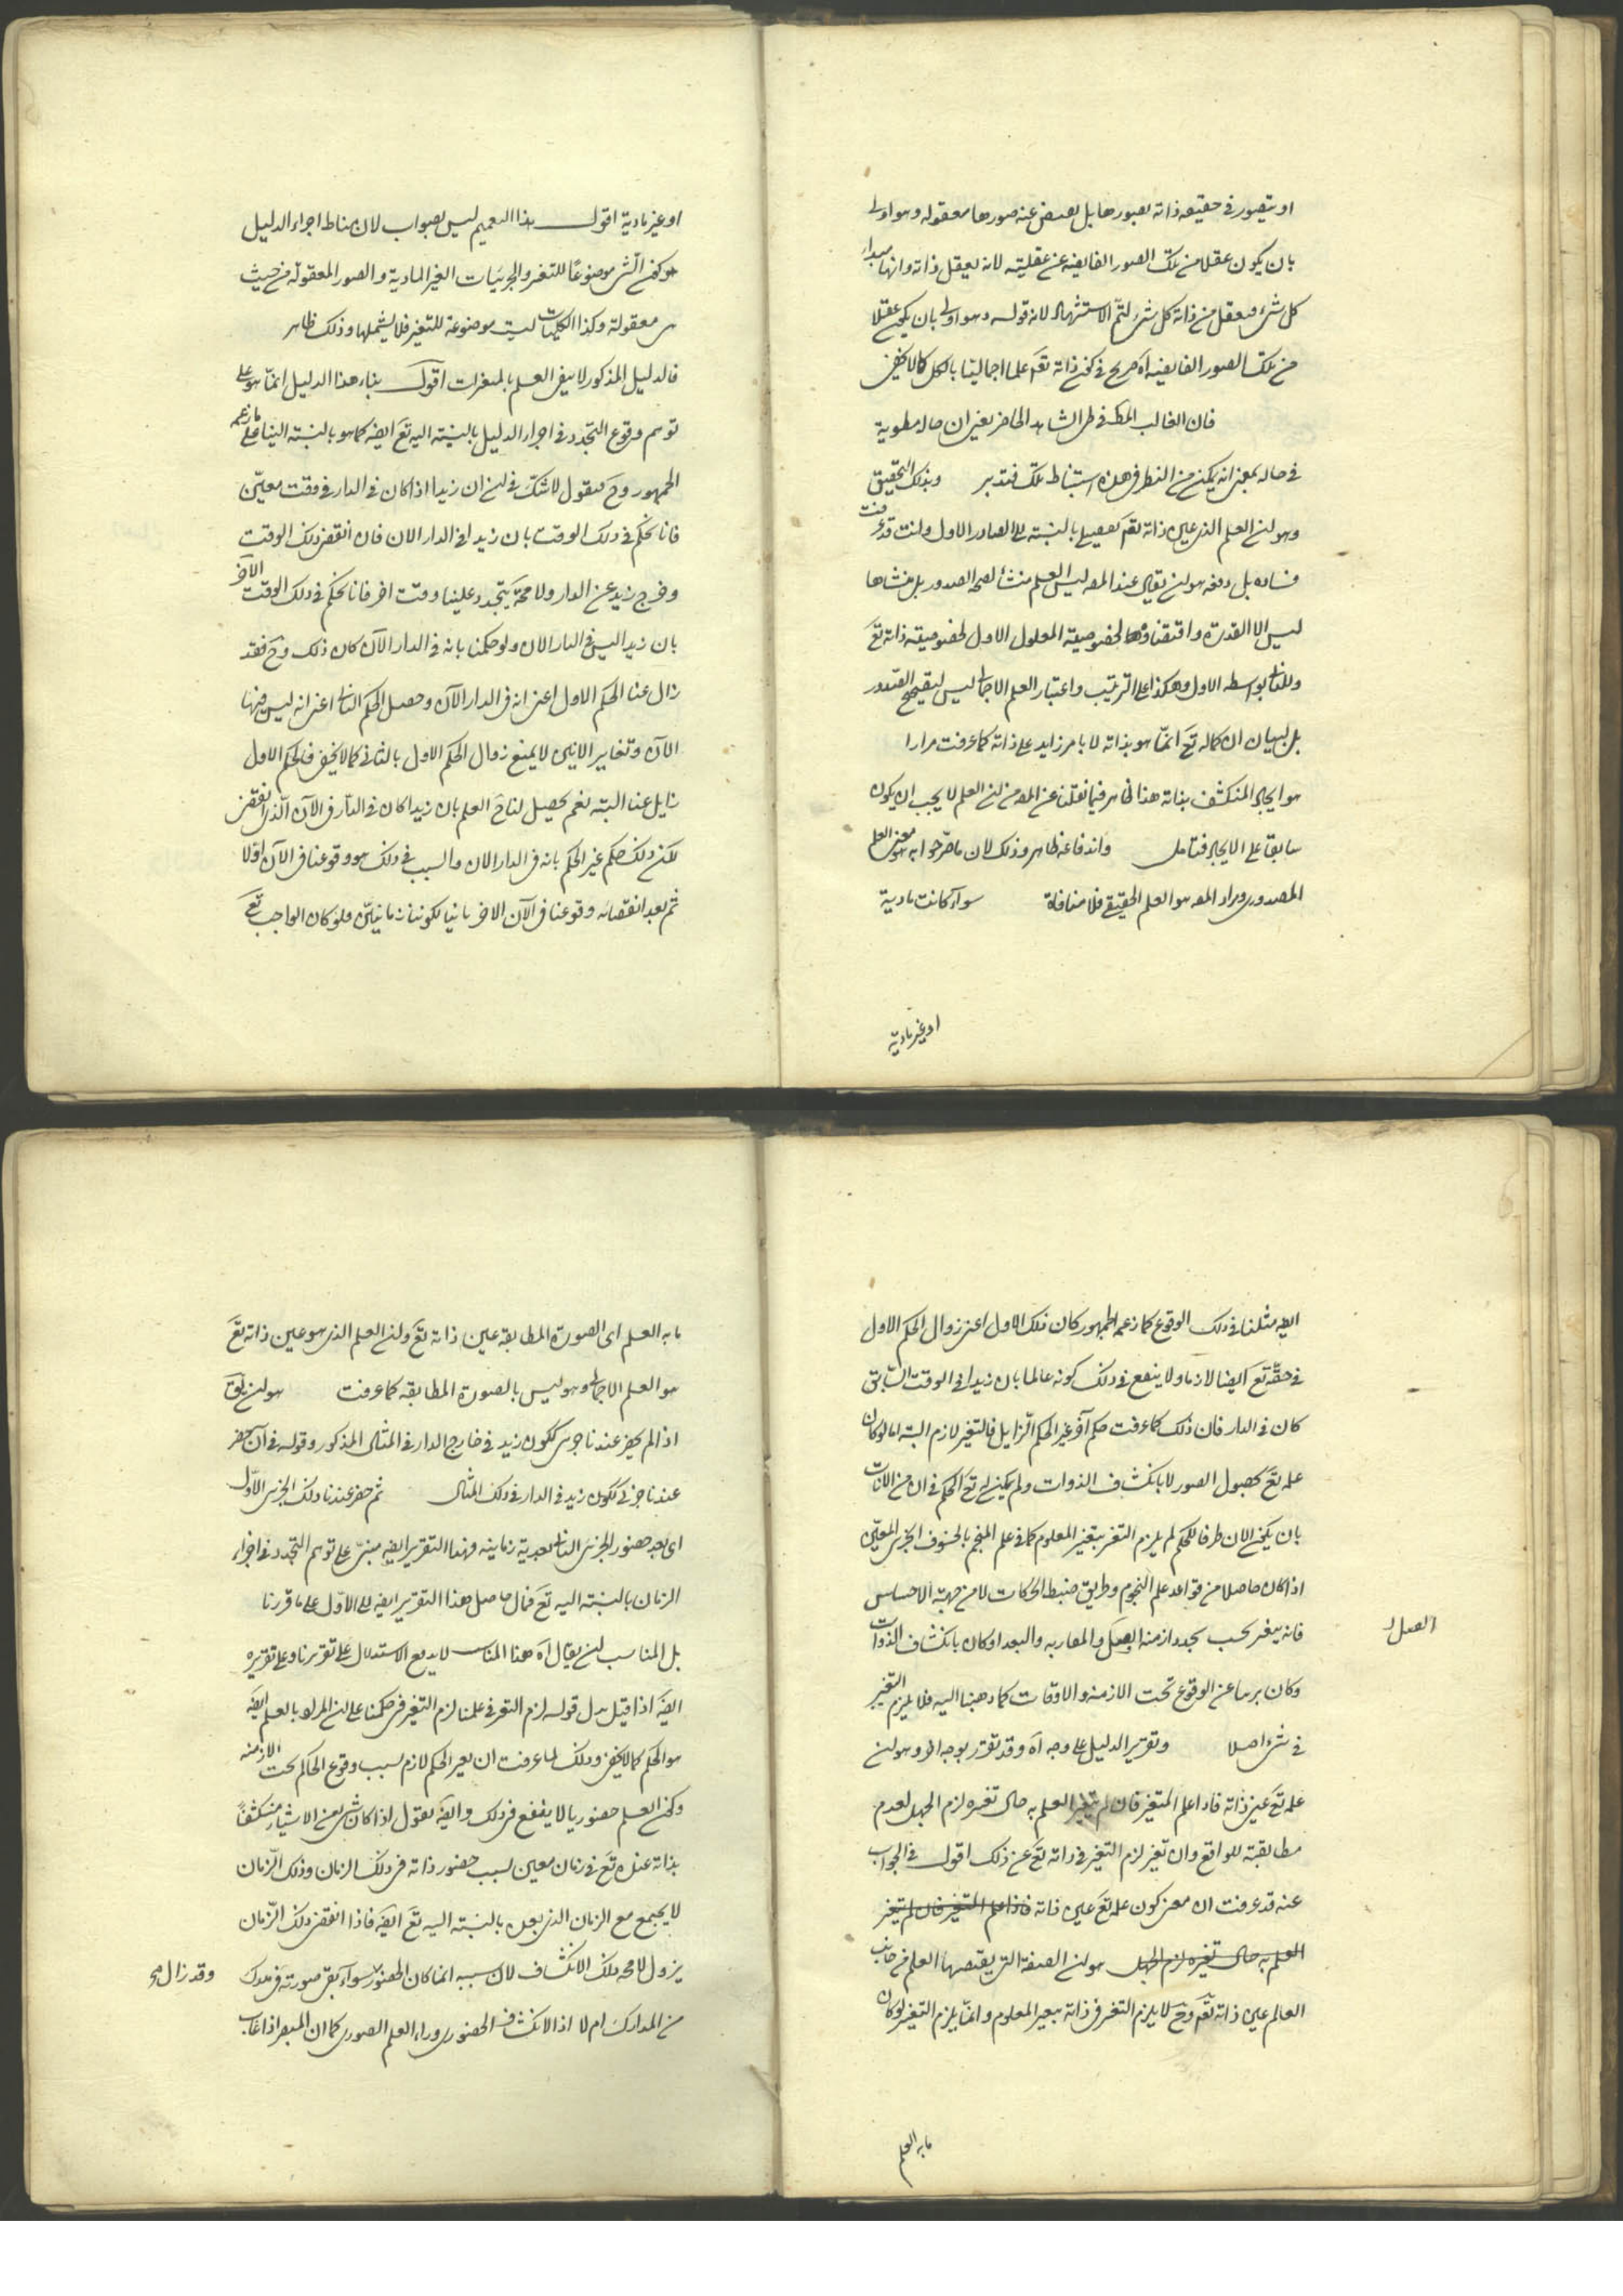 او يتصور في حقيقة ذاته بصورها بل يفيض عنه صورها معقوله وهو اولى
بان يكون عقلا من تلك الصور الفايضه عن عقليته لانه يعقل ذاته وانها مبداء
كل شئ فيعقل من ذاته كل شئ لتمّ الاستشهاد لان قوله وهو اولى بان يكون عقلا
من تلك الصور الفايضه اه صريح في كون ذاته تعه علما اجماليّا بالكل كما لا يخفى
فان الغالب المط في طى الشاهد الحاضر يعنى ان حاله مطوية
في حاله بمعنى انه يمكن من النظر في هذه استنباط تلك فتدبر وبذلك التحقيق
وهو ان العلم الذى عين ذاته تعه تفصيلى بالنسبة الى الصادر الاول وانت قد عرفت
فساده بل دفعه هو ان يقال عند المص ليس العلم منشأ لصحة الصدور بل منشاها
ليس الا القدرة واقتضاؤها لخصوصية المعلول الاول لخصوصية ذاته تع
وللثانى بواسطه الاول وهكذا على الترتيب واعتبار العلم الاجمالى ليس لتصحيح الصدور
بل لبيان ان كماله تع انمّا هو بذاته لا بامر زايد على ذاته كما عرفت مرارا
هو ايجاد المنكشف بذاته هذا ظاهر فيما نقلنا عن المص من ان العلم لا يجب ان يكون
سابقا على الايجاد فتامل واندفاعه ظاهر وذلك لان ما صرّحوا به هو معنى العلم
المصدورى ومراد المص هو العلم الحقيقى فلا منافاة سوآء كانت مادية
او غير مادية
او غير مادية اقول هذا التعميم ليس بصواب لان مناط اجراء الدليل
هو كون الشئ موضوعًا للتغير والجزئيات الغير المادية والصور المعقولة من حيث
هى معقولة وكذا الكليات ليست موضوعة للتغير فلا يشملها وذلك ظاهر
فالدليل المذكور لا ينفى العلم بالمتغيرات اقول بناء هذا الدليل انمّا هو على
توهم وقوع التجدد في اجراء الدليل بالنسبة اليه تع ايضه كما هو بالنسبة الينا على ما زعمه
الجمهور وح فنقول لا شك في ان زيدا اذا كان في الدار في وقت معيّن
فانا نحكم في ذلك الوقت بان زيدا في الدار الان فان انقضى ذلك الوقت
وخرج زيد عن الدار ولا محة يتجدد علينا وقت اخر فانا نحكم في ذلك الوقت الآخر
بان زيدا ليس في الدار الان ولو حكمنا بانه في الدار الآن كان ذلك وح فقد
زال عنا الحكم الاول اعنى انه في الدار الآن وحصل الحكم الثانى اعنى انه ليس فيها
الآن وتغاير الانين لا يمنع زوال الحكم الاول بالثانى كما لا يخفى فالحكم الاول
زايل عنا البته نعم يحصل لنا ح العلم بان زيدا كان في الدّار في الآن الّذى انقضى
لكن ذلك حكم غير الحكم بانه في الدار الان والسبب في ذلك هو وقوعنا في الآن اوّلا
ثم بعد انقضائه وقوعنا في الآن الاخر ثانيا لكوننا زمانيّين فلو كان الواجب تع
ايضه مثلنا في ذلك الوقوع كما زعمه الجمهور كان ذلك الاول اعنى زوال الحكم الاول
في حقّه تع ايضا لازما ولا ينفع في ذلك كونه عالما بان زيدا في الوقت السّابق
كان في الدار فان ذلك كما عرفت حكم آخر غير الحكم الزّايل فالتغير لازم البته اما لو كان
علمه تع بحصول الصور لا بانكشاف الذوات ولم يمكن له تع الحكم في ان من الانات
بان يكون الان طرفا للحكم لم يلزم التغير بتغير المعلوم كما في علم المنجم بالخسوف الجزئى المعيّن
اذا كان حاصلا من قواعد علم النجوم وطريق ضبط الحركات لا من جهة الاحساس
فانه يتغير بحسب تجدد ازمنة الفصل والمقاربه والبعد او كان بانكشاف الذوات
وكان بريا عن الوقوع تحت الازمنه والاوقات كما ذهبنا اليه فلا يلزم التغير
في شئ اصلا وتقرير الدليل على وجه اه وقد تقرر بوجه اخر وهو ان
علمه تع عين ذاته فاذا علم المتغير فان لم يتغير العلم به حال تغيره لزم الجهل لعدم
مطابقته للواقع وان تغير لزم التغير في ذاته تع عن ذلك اقول في الجواب
عنه قد عرفت ان معنى كون علمه تع عين ذاته فاذا علم المتغير فان لم يتغير
العلم به حال تغيره لزم الجهل هو ان الصفة التى يقتضيها العلم في جانب
العالم عين ذاته تعه وح لا يلزم التغير في ذاته بتغير المعلوم وانمّا يلزم التغير لو كان
ما به العلم
ما به العلم اى الصورة المطابقه عين ذاته تع وان العلم الذى هو عين ذاته تع
هو العلم الاجمالى وهو ليس بالصورة المطابقه كما عرفت هو ان يق
اذا لم يحضر عندنا جزئى ككون زيد في خارج الدار في المثال المذكور وقوله في آن يحضر
عندنا جزئى ككون زيد في الدار في ذلك المثال ثم حضر عندنا ذلك الجزئى الاوّل
اى بعد حضور الجزئى الثانى بعدية زمانيه وهذا التقرير ايضه مبنىّ على توهم التجدد في اجزاء
الزمان بالنسبة اليه تع فمآل حاصل هذا التقرير ايضه الى الاوّل على ما قررنا
بل المناسب ان يقال اه هذا المناسب لا يدفع الاستدلال على تقريرنا وعلى تقريره
ايضه اذا قيل بدل قوله لزم التغير في علمنا لزم التغير في حكمنا على ان المراد بالعلم ايضه
هو الحكم كما لا يخفى وذلك لما عرفت ان تغير الحكم لازم بسبب وقوع الحاكم تحت الازمنه
وكون العلم حضوريا لا ينفع في ذلك وايضه نقول اذا كان شئ من الاشياء منكشفًا
بذاته عنده تع في زمان معين بسبب حضور ذاته في ذلك الزمان وذلك الزّمان
لا يجتمع مع الزمان الذى بعده بالنسبة اليه تع ايضه فاذا انقضى ذلك الزّمان
يزول لا محه ذلك الانكشاف لان سببه انما كان الحضور وقد زال سوآء بقى صورته في مدرك
من المدارك ام لا اذ الانكشاف الحضورى وراء العلم الصورى كما ان المبصر اذا غاب